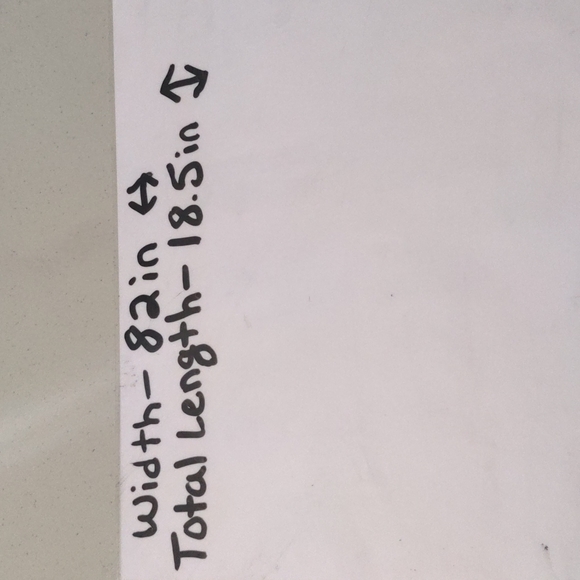 Width - 82in ↔
Total Length - 18.5in ↕